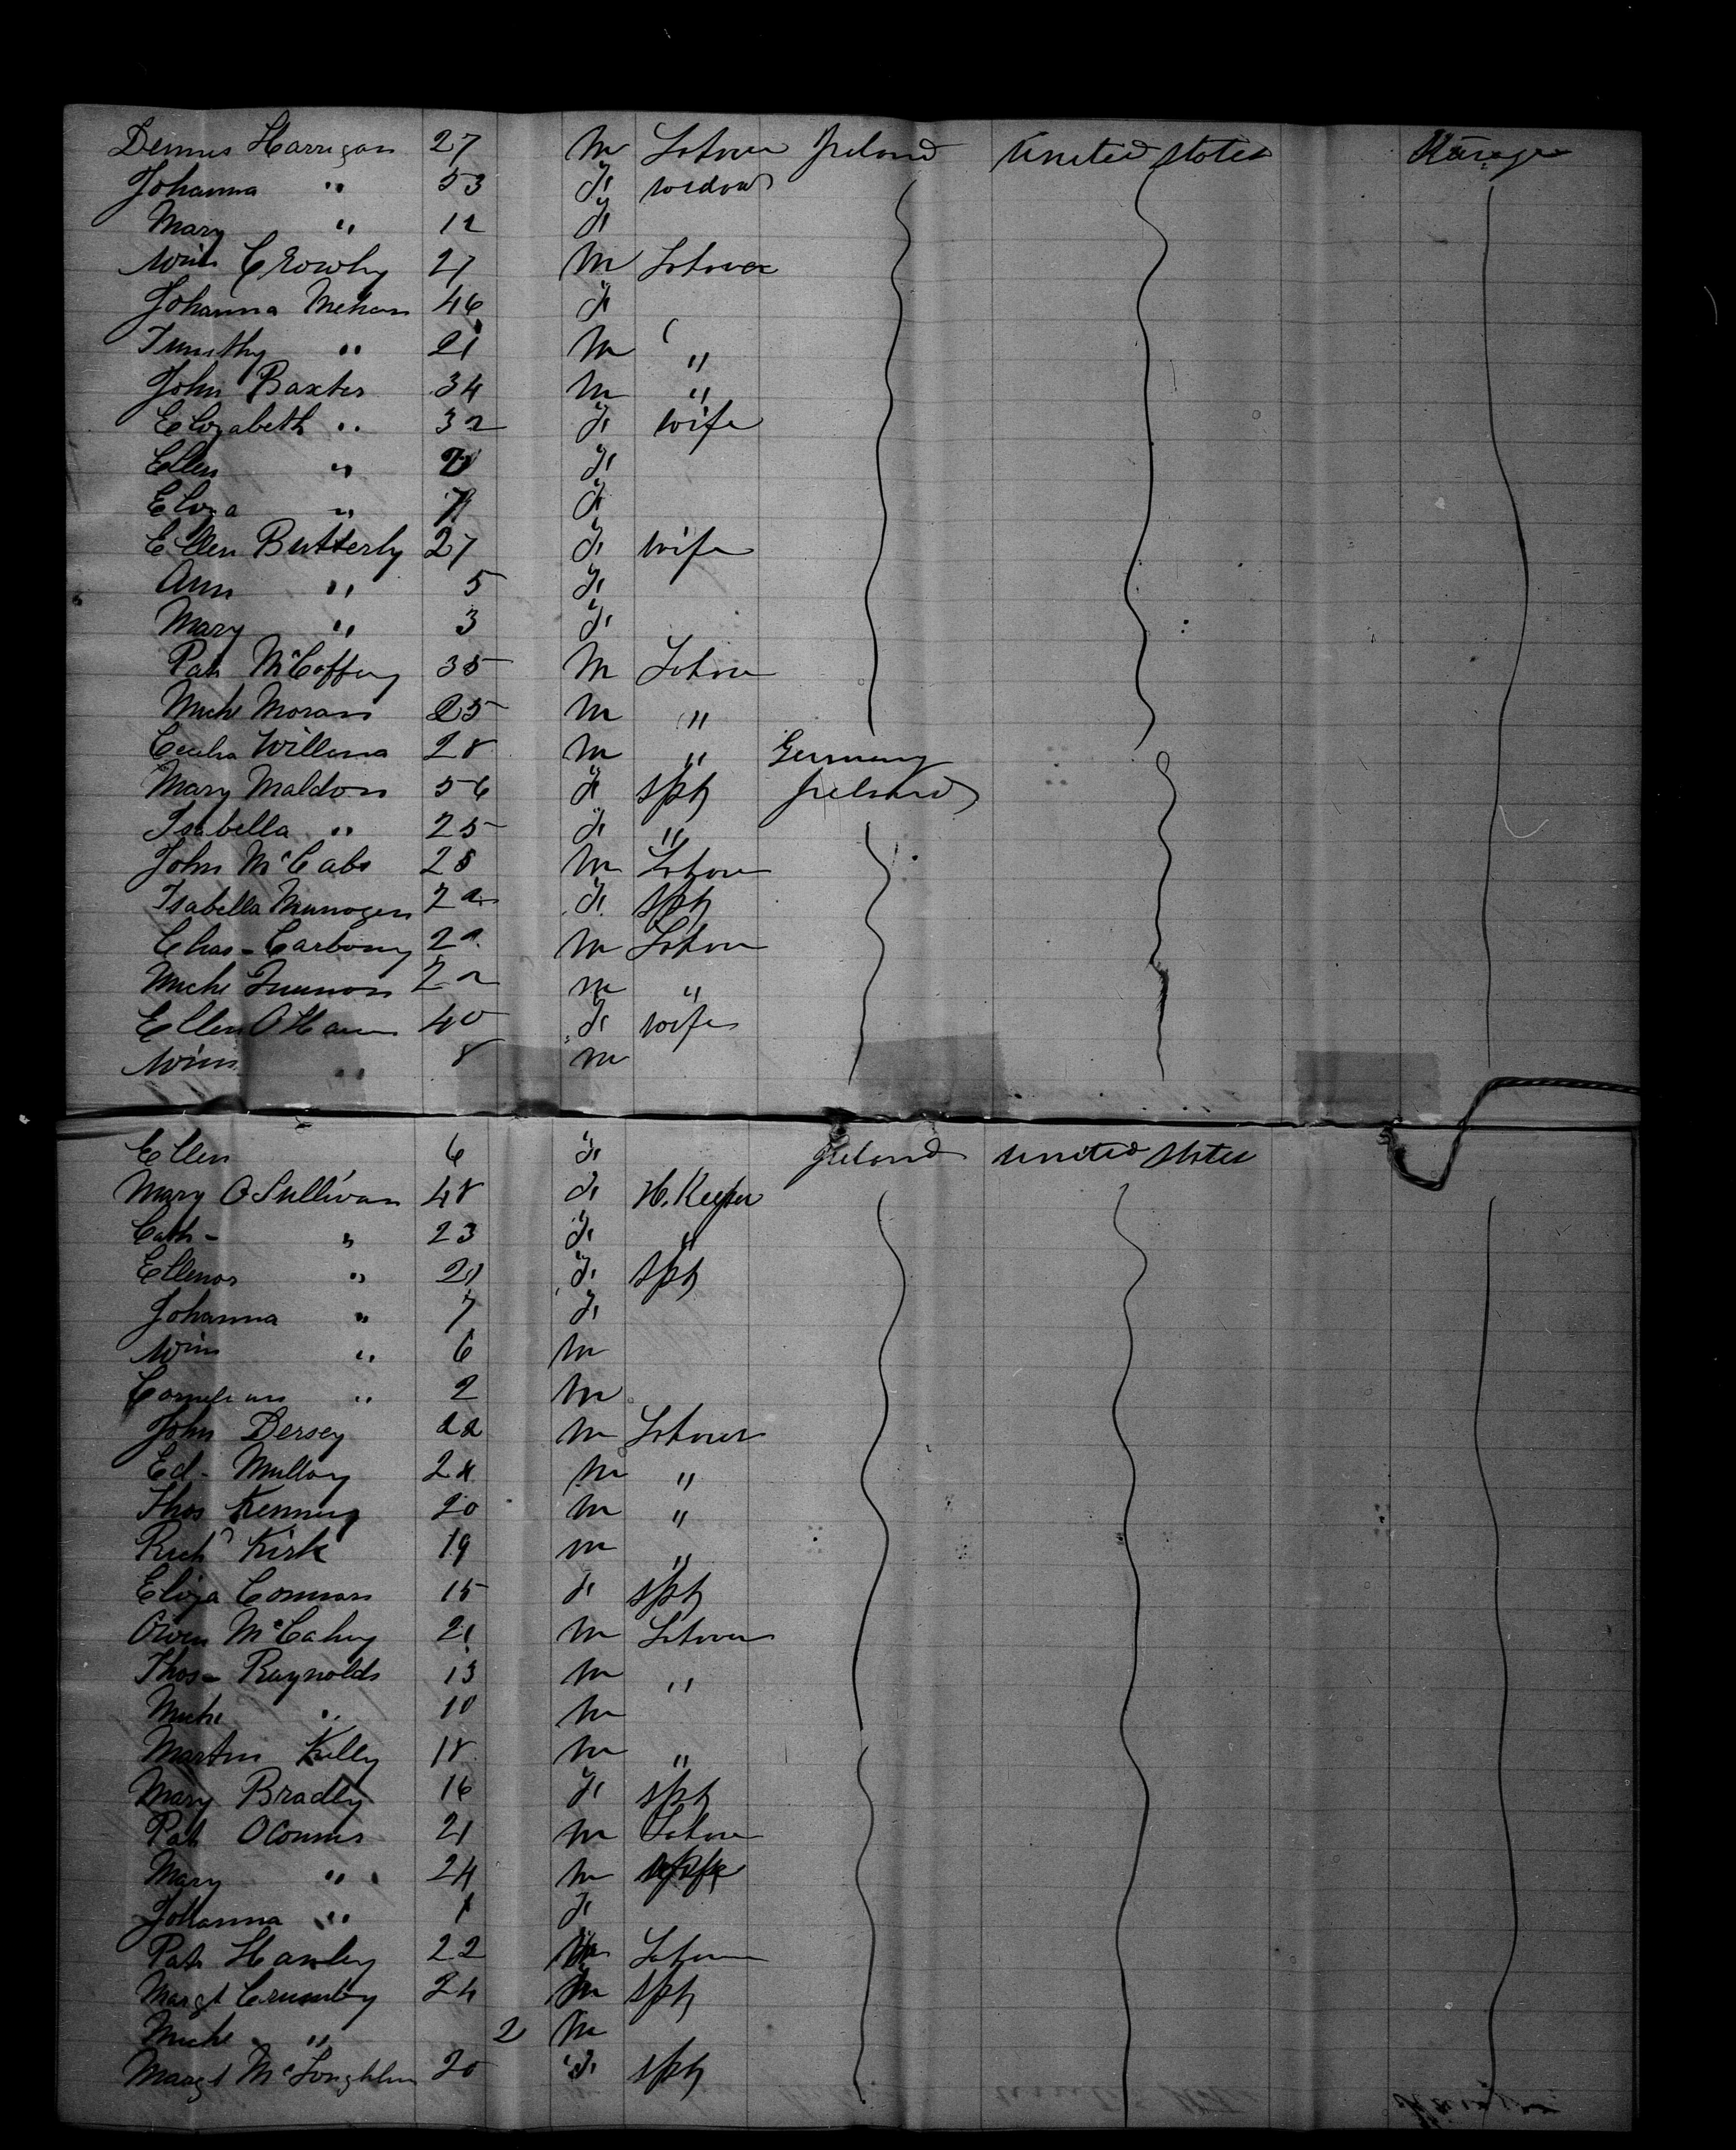 Dennis Harrigan 27 M Labour Ireland United States Steerage
Johanna " 53 F widow
Mary " 12 F
Wm Crowley 27 M Labour
Johanna Mehan 46 F
Timothy " 21 M "
John Baxter 34 M "
Elizabeth " 32 F wife
Ellen " F
Eliza " F
Ellen Butterly 27 F wife
Ann " 5 F
Mary " 3 F
Pat McCaffery 35 M Labour
Michl Moran 25 M "
Cecilia Willama 28 M " Germany
Mary Maldon 56 F Spr Ireland
Isabella " 25 F "
John McCabe 28 M Labour
Isabella F Spr
Chas - Carbony M Labour
Michl 22 M "
Ellen O'Hara 40 F wife
Wm " 8 M
Ellen 6 F Ireland United States
Mary O Sullivan 48 F H. Keeper
Cath - " 23 F "
Ellenor " 21 F Spr
Johanna " 7 F
Wm " 6 M
Cornelius " 2 M
John Dersey 22 M Labour
Ed - Mullony M "
Thos Kenning 20 M "
Richd Kirk 19 M "
Eliza Connors 15 F Spr
Owen McCahey 21 M Labour
Thos - Raynolds 13 M "
Michl " 10 M
Martin Kelly 18 M "
Mary Bradley 16 F Spr
Pat OConnor 21 M Labour
Mary " 24 M wife
Johanna " 1 F
Pat Hanley 22 M Labour
Margt Crumby 24 Spr
Michl " 2 M
Margt McLoughlin 20 F Spr